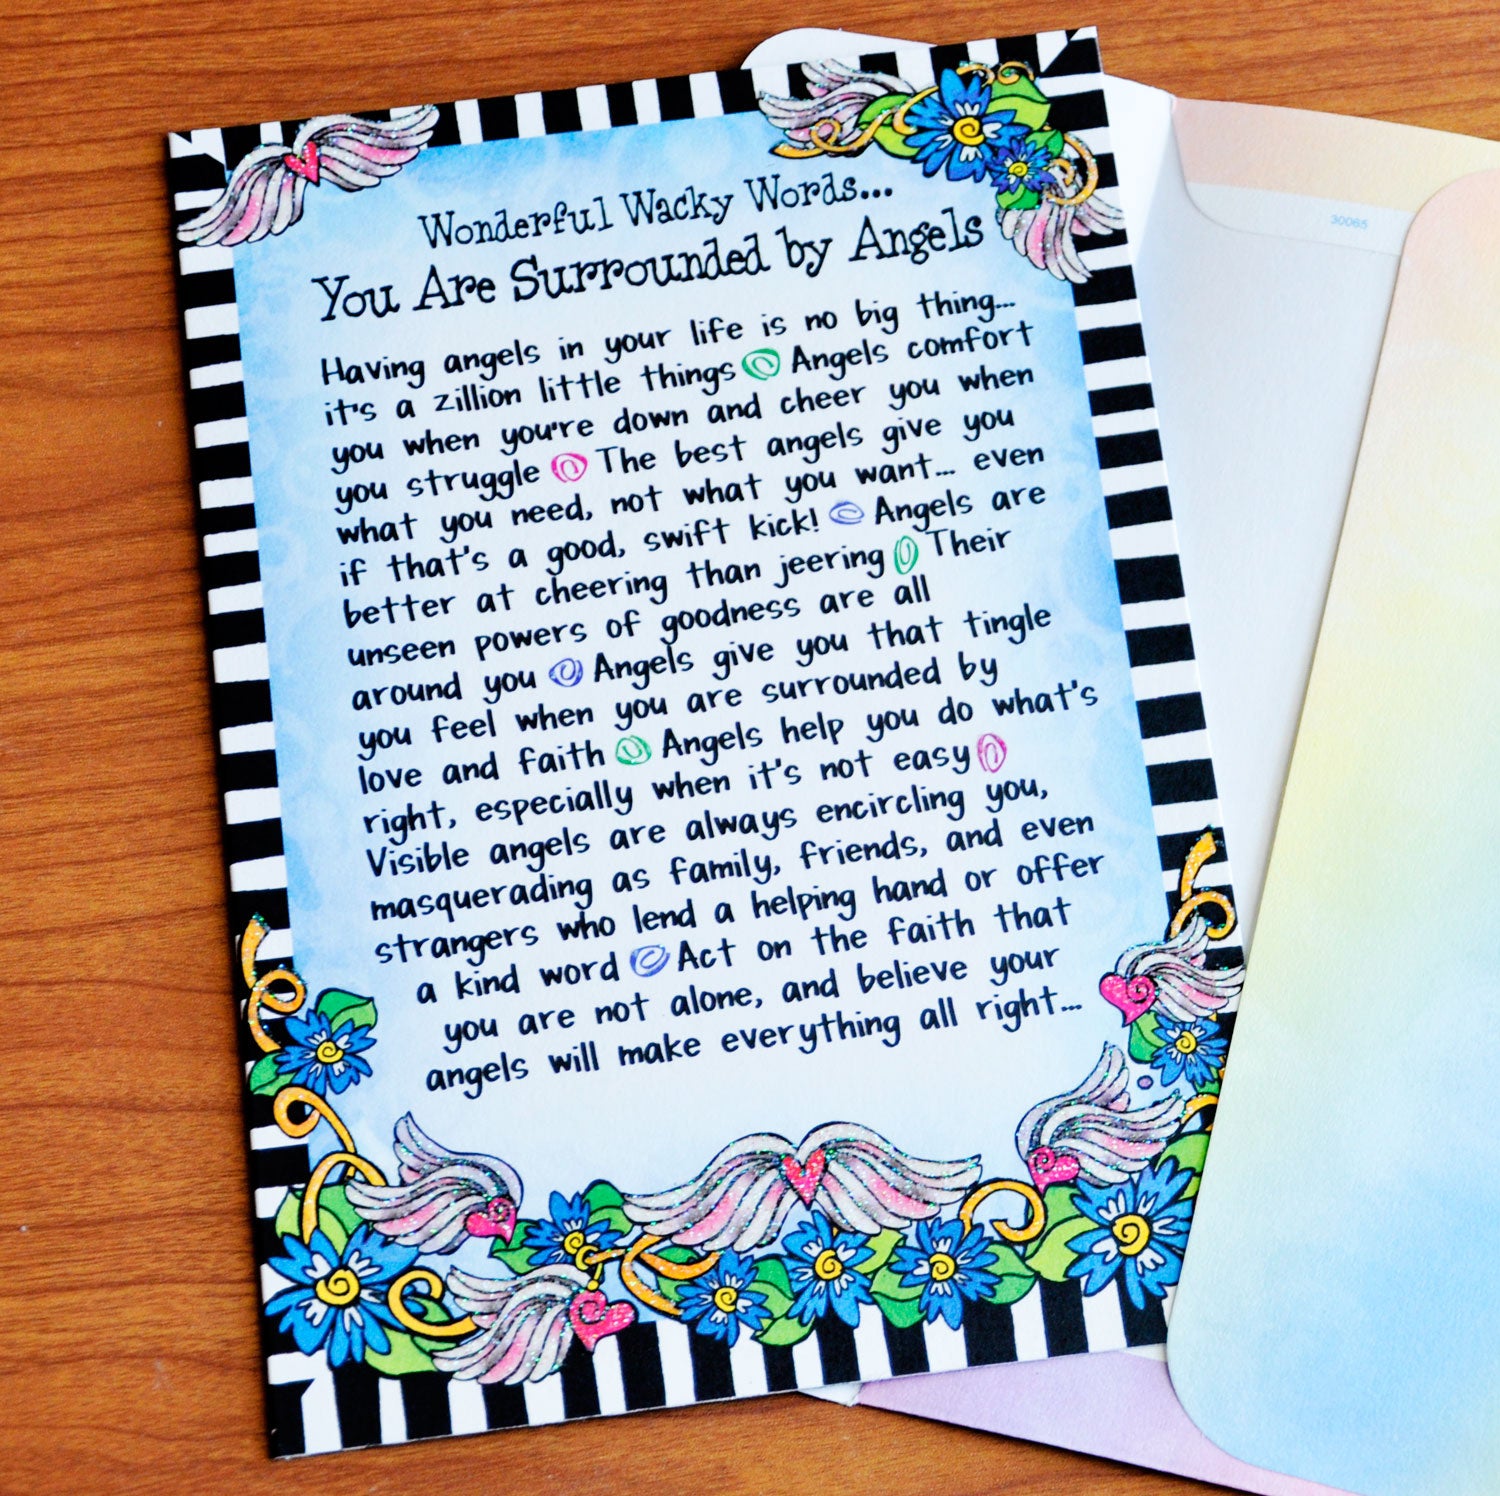 Wonderful Wacky Words...
You Are Surrounded by Angels
Having angels in your life is no big thing...
it's a zillion little things Angels comfort
you when you're down and cheer you when
you struggle The best angels give you
what you need, not what you want... even
if that's a good, swift kick! Angels are
better at cheering than jeering Their
unseen powers of goodness are all
around you Angels give you that tingle
you feel when you are surrounded by
love and faith Angels help you do what's
right, especially when it's not easy
Visible angels are always encircling you,
masquerading as family, friends, and even
strangers who lend a helping hand or offer
a kind word Act on the faith that
you are not alone, and believe your
angels will make everything all right...
30065